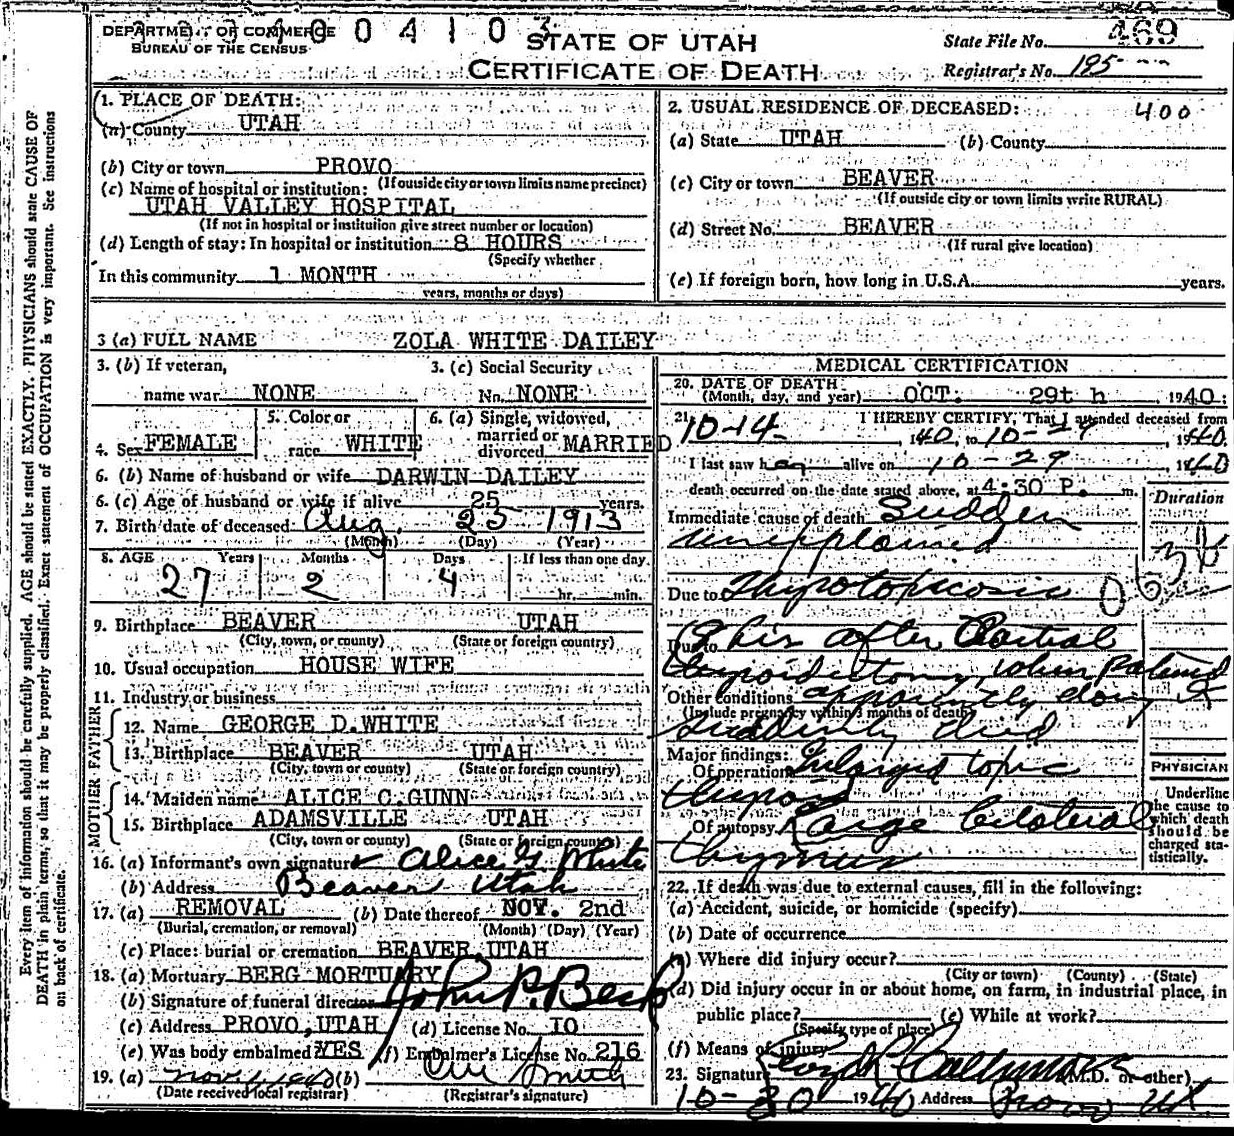 0 0 4 1 0 3
DEPARTMENT OF COMMERCE
BUREAU OF THE CENSUS
STATE OF UTAH
CERTIFICATE OF DEATH
State File No. 469
Registrar's No. 195
Every item of information should be carefully supplied. AGE should be stated EXACTLY. PHYSICIANS should state CAUSE OF
DEATH in plain terms, so that it may be properly classified. Exact statement of OCCUPATION is very important. See instructions
on back of certificate.
1. PLACE OF DEATH:
(a) County UTAH
(b) City or town PROVO
(If outside city or town limits name precinct)
(c) Name of hospital or institution:
UTAH VALLEY HOSPITAL
(If not in hospital or institution give street number or location)
(d) Length of stay: In hospital or institution 8 HOURS
(Specify whether
In this community 1 MONTH
years, months or days)
2. USUAL RESIDENCE OF DECEASED: 400
(a) State UTAH (b) County
(c) City or town BEAVER
(If outside city or town limits write RURAL)
(d) Street No. BEAVER
(If rural give location)
(e) If foreign born, how long in U.S.A. years.
3 (a) FULL NAME ZOLA WHITE DAILEY
3. (b) If veteran, name war NONE
3. (c) Social Security No. NONE
4. Sex FEMALE
5. Color or race WHITE
6. (a) Single, widowed, married or divorced MARRIED
6. (b) Name of husband or wife DARWIN DAILEY
6. (c) Age of husband or wife if alive 25 years.
7. Birth date of deceased Aug. 25 1913
(Month) (Day) (Year)
8. AGE Years Months Days If less than one day
27 2 4 hr. min.
9. Birthplace BEAVER UTAH
(City, town, or county) (State or foreign country)
10. Usual occupation HOUSE WIFE
11. Industry or business
FATHER
12. Name GEORGE D.WHITE
13. Birthplace BEAVER UTAH
(City, town or county) (State or foreign country)
MOTHER
14. Maiden name ALICE C.GUNN
15. Birthplace ADAMSVILLE UTAH
(City, town or county) (State or foreign country)
16. (a) Informant's own signature Alice G. White
(b) Address Beaver Utah
17. (a) REMOVAL (b) Date thereof NOV. 2nd
(Burial, cremation, or removal) (Month) (Day) (Year)
(c) Place: burial or cremation BEAVER, UTAH
18. (a) Mortuary BERG MORTUARY
(b) Signature of funeral director
(c) Address PROVO, UTAH (d) License No. 10
(e) Was body embalmed YES (f) Embalmer's License No. 216
19. (a) (b) Smith
(Date received local registrar) (Registrar's signature)
MEDICAL CERTIFICATION
20. DATE OF DEATH
(Month, day, and year) OCT. 29th, 1940
21. I HEREBY CERTIFY, That I attended deceased from
10-14-, 1940, to 10-29, 1940
I last saw her alive on 10-29, 1940
death occurred on the date stated above, at 4:30 P. m.
Duration
Immediate cause of death Sudden
unexplained
Due to
Due to after Partial
thyroidectomy, when patient
Other conditions apparently doing
(Include pregnancy within 3 months of death)
suddenly died
Major findings:
Of operation Enlarged toxic
thyroid
Of autopsy Large bilateral
thymus
PHYSICIAN
Underline the cause to which death should be charged statistically.
22. If death was due to external causes, fill in the following:
(a) Accident, suicide, or homicide (specify)
(b) Date of occurrence
(c) Where did injury occur?
(City or town) (County) (State)
(d) Did injury occur in or about home, on farm, in industrial place, in
public place? (e) While at work?
(Specify type of place)
(f) Means of injury
23. Signature (M.D. or other)
10-30 1940 Address Provo Ut